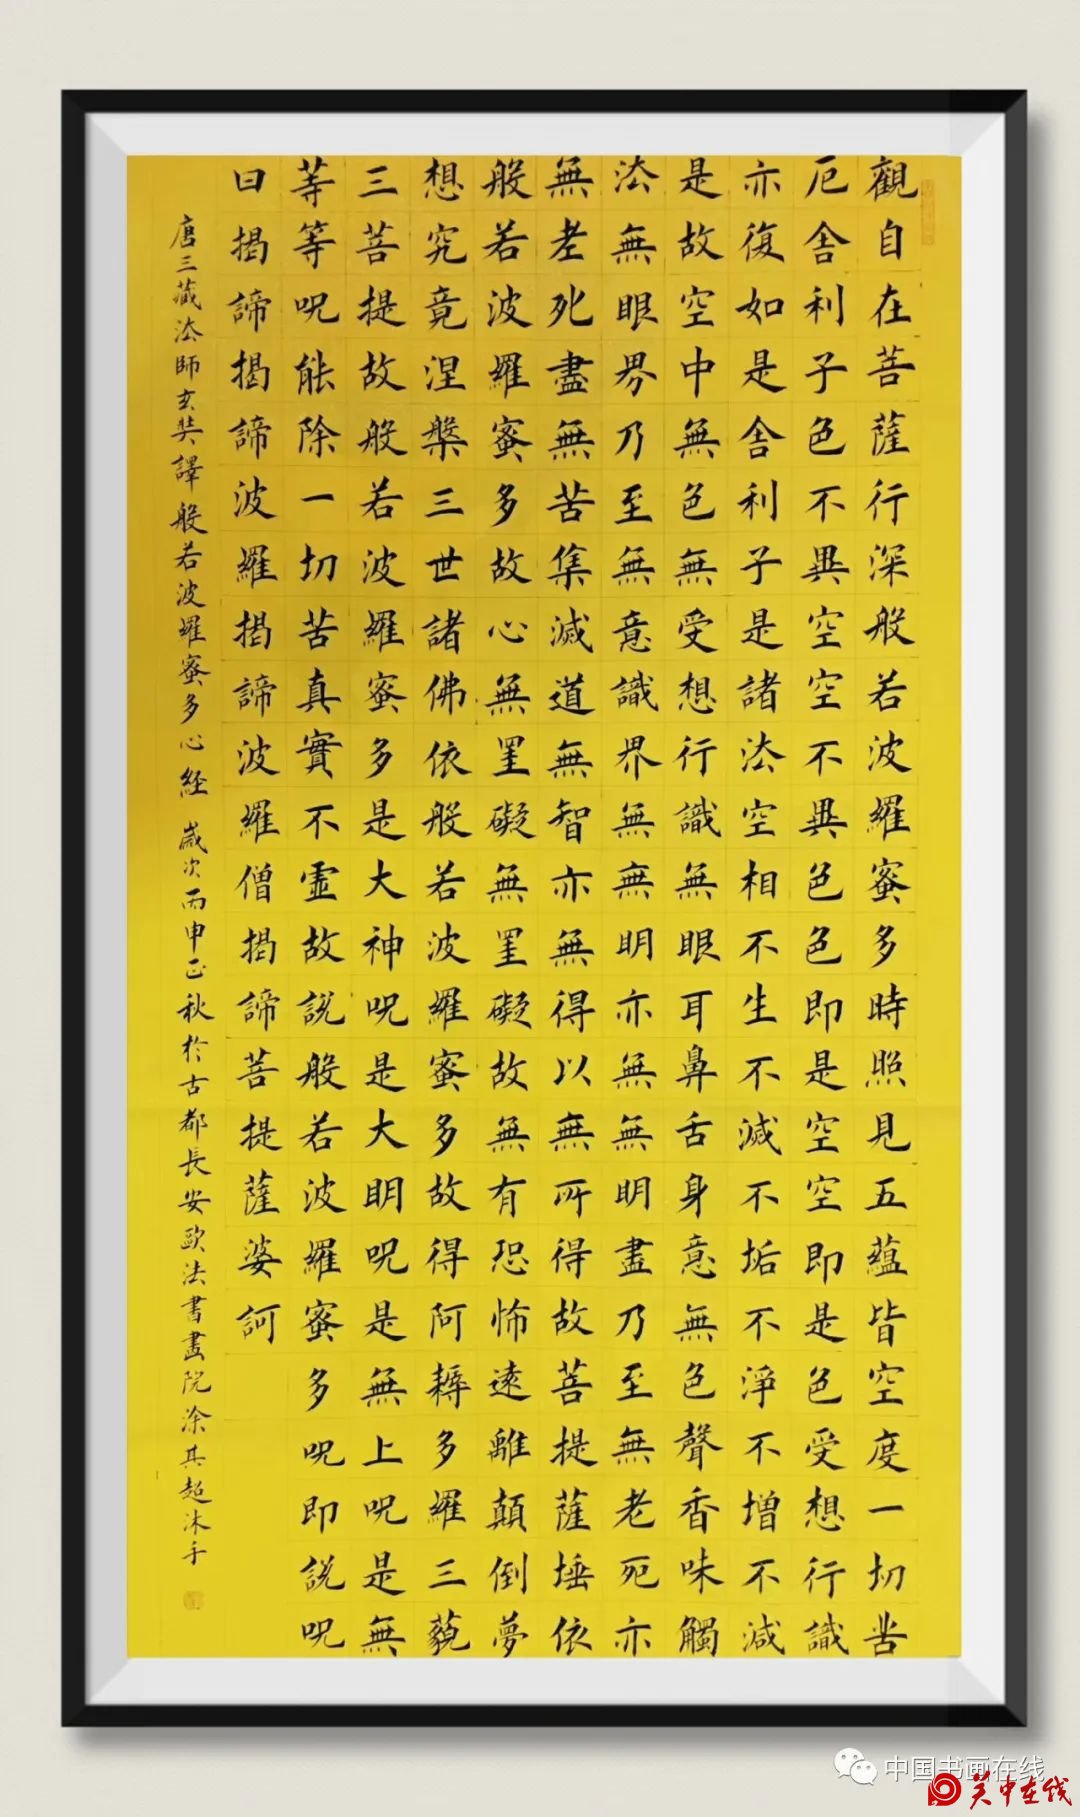 觀自在菩薩行深般若波羅蜜多時照見五蘊皆空度一切苦
厄舍利子色不異空空不異色色即是空空即是色受想行識
亦復如是舍利子是諸法空相不生不滅不垢不淨不增不減
是故空中無色無受想行識無眼耳鼻舌身意無色聲香味觸
法無眼界乃至無意識界無無明亦無無明盡乃至無老死亦
無老死盡無苦集滅道無智亦無得以無所得故菩提薩埵依
般若波羅蜜多故心無罣礙無罣礙故無有恐怖遠離顛倒夢
想究竟涅槃三世諸佛依般若波羅蜜多故得阿耨多羅三藐
三菩提故般若波羅蜜多是大神呪是大明呪是無上呪是無
等等呪能除一切苦真實不虛故說般若波羅蜜多呪即說呪
曰揭諦揭諦波羅揭諦波羅僧揭諦菩提薩婆訶
唐三藏法師玄奘譯般若波羅蜜多心經 歲次丙申正秋於古都長安歐法書畫院涂其超沐手
中国书画在线
关中在线